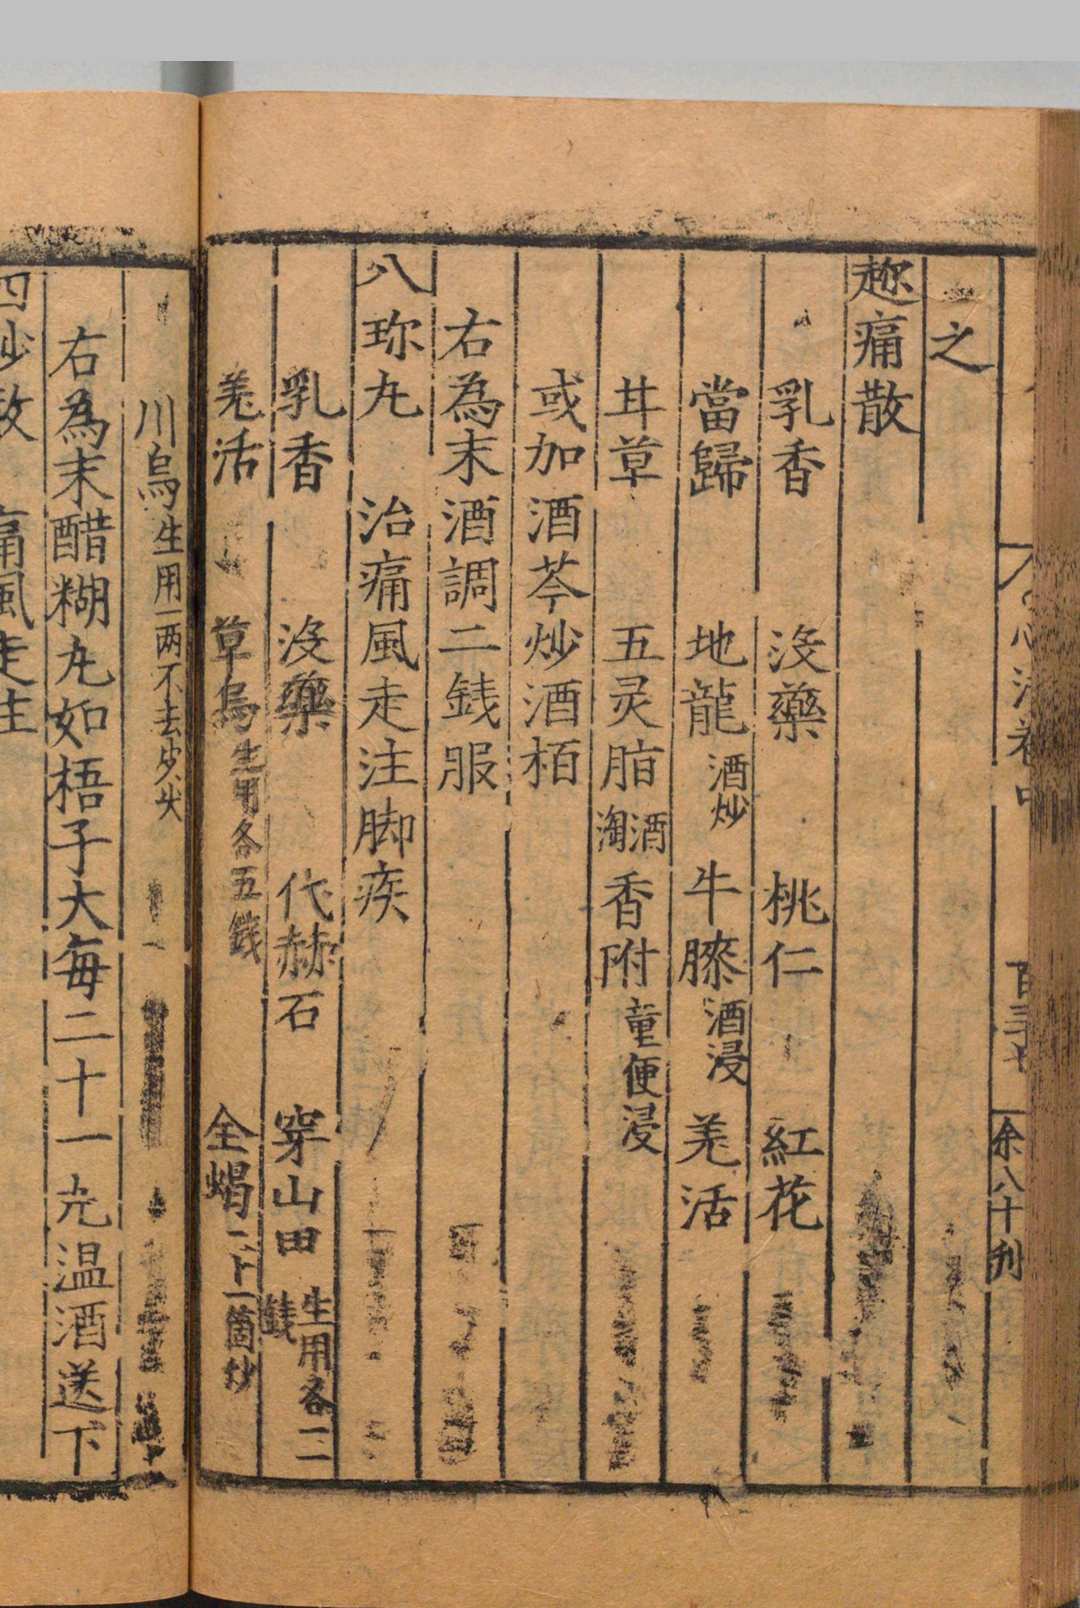 心法卷中 百三七 余八十刊
之
趂痛散
乳香 沒藥 桃仁 紅花
當歸 地龍酒炒 牛膝酒浸 羌活
甘草 五灵脂酒淘 香附童便浸
或加酒芩炒酒栢
右為末酒調二銭服
八珎丸 治痛風走注脚疾
乳香 沒藥 代赫石 穿山甲生用各二銭
羌活 草烏生用各五銭 全蝎二十一箇炒
川烏生用一两不去皮尖
右為末醋糊丸如梧子大每二十一丸温酒送下
四妙散 痛風走注